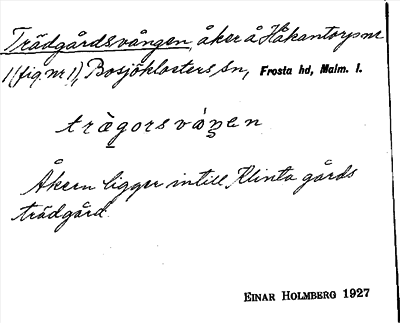 Trädgårdsvången, åker å Håkantorp nr
1 (fig nr 1), Bosjöklosters sn, Frosta hd, Malm. l.
trägorsvåŋen
Åkern ligger intill Klinta gårds
trädgård.
EINAR HOLMBERG 1927